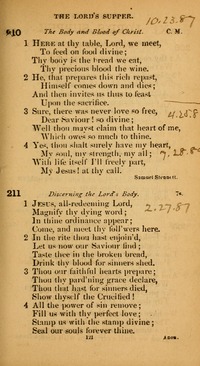 THE LORD'S SUPPER.
10.23.87
210 The Body and Blood of Christ. C. M.
1 HERE at thy table, Lord, we meet,
To feed on food divine;
Thy body is the bread we eat,
Thy precious blood the wine.
2 He, that prepares this rich repast,
Himself comes down and dies;
And then invites us thus to feast
Upon the sacrifice.
3 Sure, there was never love so free,
Dear Saviour! so divine;
Well thou mayst claim that heart of me,
Which owes so much to thine.
4 Yes, thou shalt surely have my heart,
My soul, my strength, my all;
With life itself I'll freely part,
My Jesus! at thy call.
Samuel Stennett.
211 Discerning the Lord's Body. 7s.
1 JESUS, all-redeeming Lord,
Magnify thy dying word;
In thine ordinance appear;
Come, and meet thy foll'wers here.
2 In the rite thou hast enjoin'd,
Let us now our Saviour find;
Taste thee in the broken bread,
Drink thy blood for sinners shed.
3 Thou our faithful hearts prepare;
Thou thy pard'ning grace declare,
Thou that hast for sinners died,
Show thyself the Crucified!
4 All the power of sin remove;
Fill us with thy perfect love;
Stamp us with the stamp divine;
Seal our souls forever thine.
121 Anon.
2.27.87